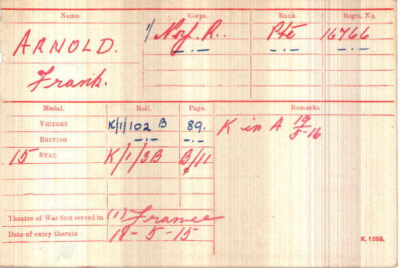 Name. Corps. Rank. Regtl. No.
ARNOLD. 1/ Norf. R. Pte 16766
Frank. -.- -.- -.-
Medal. Roll. Page. Remarks.
VICTORY K/1/102 B 89. K in A 19/5-16
BRITISH -.- -.-
15 STAR K/1/3B B/11
Theatre of War first served in (1) France
Date of entry therein 18-5-15
K. 1380.